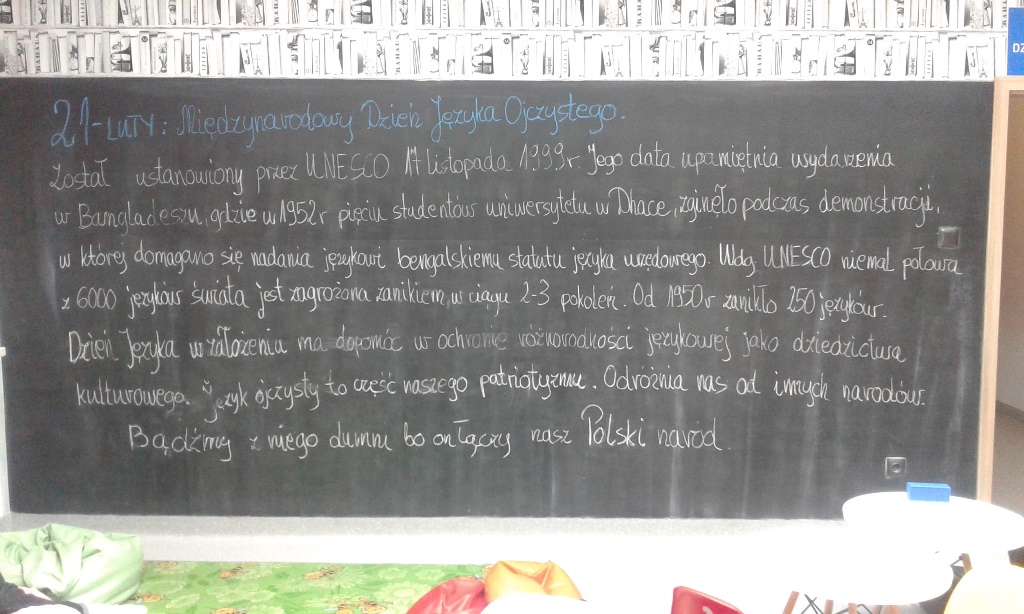 21-LUTY: Międzynarodowy Dzień Języka Ojczystego.
Został ustanowiony przez UNESCO 17 listopada 1999r. Jego data upamiętnia wydarzenia
w Bangladeszu, gdzie w 1952r pięciu studentów uniwersytetu w Dhace, zginęło podczas demonstracji,
w której domagano się nadania językowi bengalskiemu statutu języka urzędowego. Wdg UNESCO niemal połowa
z 6000 języków świata jest zagrożona zanikiem, w ciągu 2-3 pokoleń. Od 1950r zanikło 250 języków.
Dzień Języka w założeniu ma dopomóc w ochronie różnorodności językowej jako dziedzictwa
kulturowego. Język ojczysty to część naszego patriotyzmu. Odróżnia nas od innych narodów.
Bądźmy z niego dumni bo on łączy nasz Polski naród.
DZ